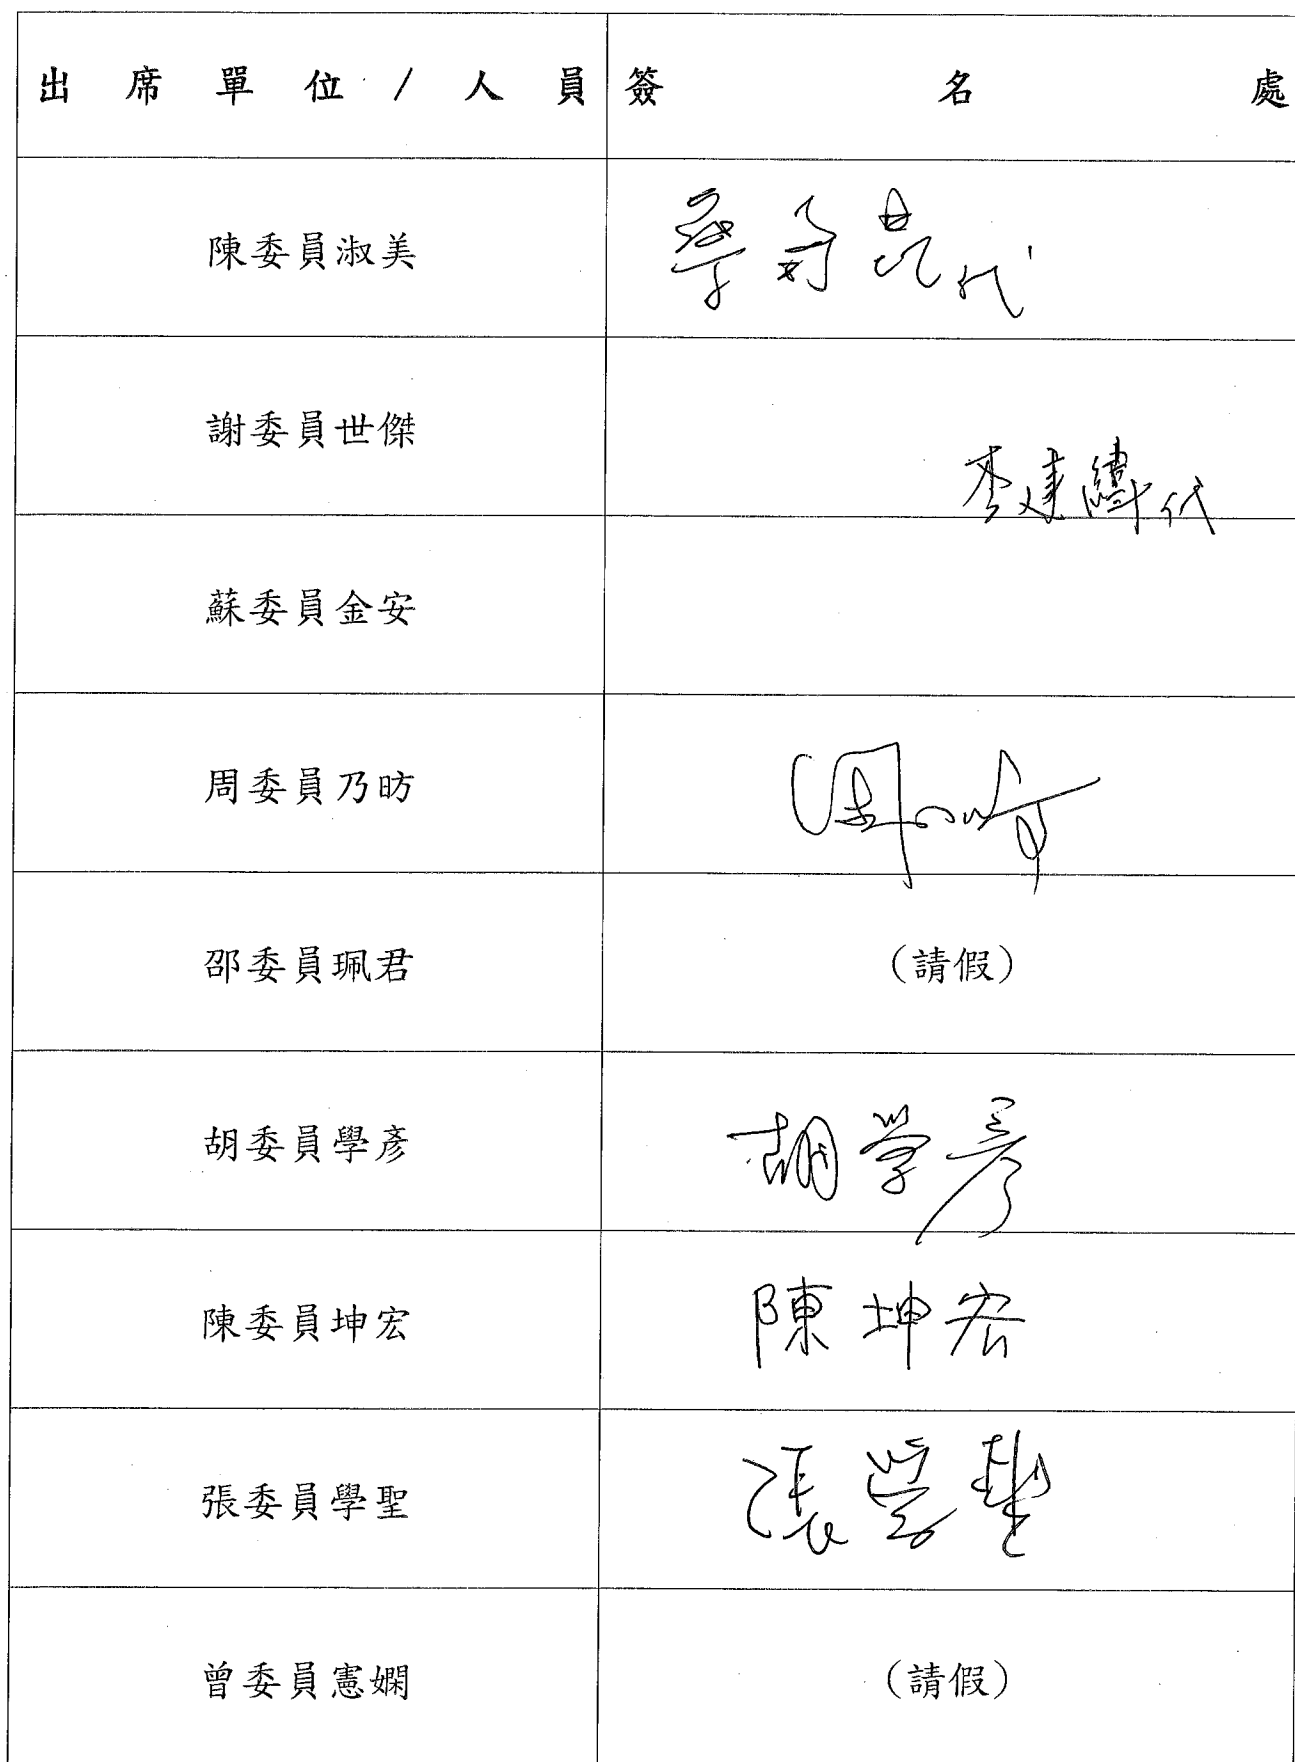 出席單位/人員 簽名處
陳委員淑美 代
謝委員世傑
李建緯代
蘇委員金安
周委員乃昉 周乃昉
邵委員珮君 (請假)
胡委員學彥 胡學彥
陳委員坤宏 陳坤宏
張委員學聖 張學聖
曾委員憲嫻 (請假)